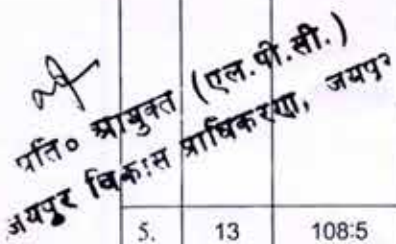 प्रति० आयुक्त (एल.पी.सी.)
जयपुर विकास प्राधिकरण, जयपुर
5. 13 108:5